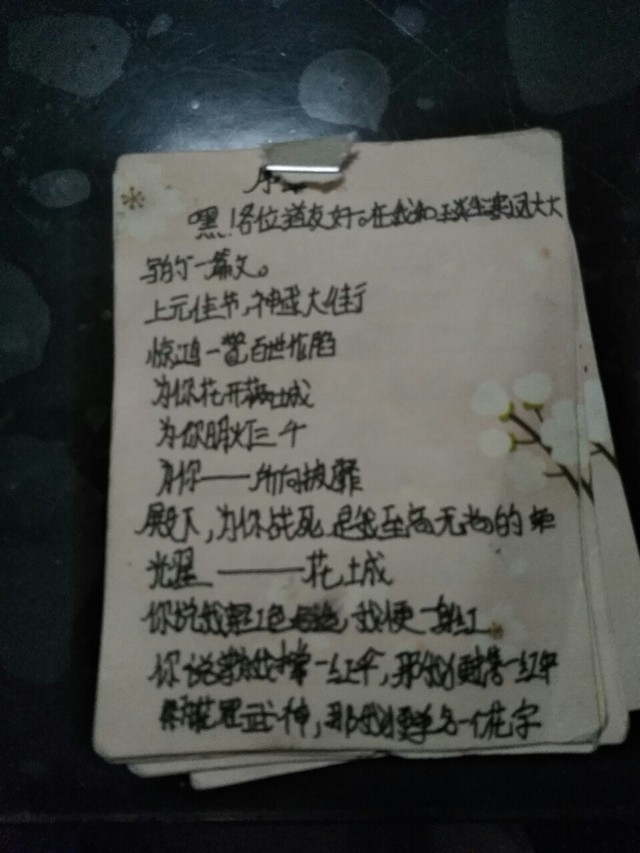 序章
嘿!各位道友好。在我和
大大
写的一篇文。
上元佳节,神武大街
惊鸿一瞥百世沦陷
为你花开满城
为你明灯三千
为你——所向披靡
殿下,为你战死是我至高无上的
光耀——花城
你说我红色,我便一身红
你说一红伞,那我便撑一红伞
花冠武神,那我便单名一个花字